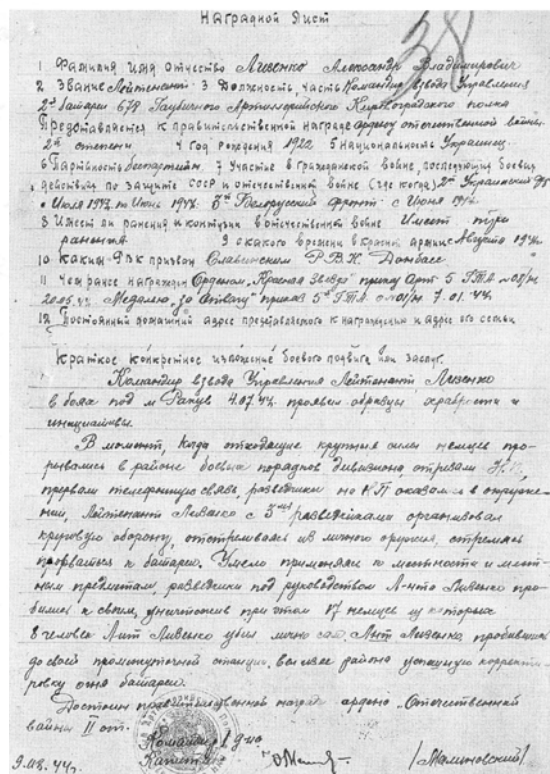 Наградной Лист
38
1 Фамилия Имя Отчество Лизенко Александр Владимирович
2 Звание Лейтенант 3 Должность, часть Командир взвода Управления
2й батареи 674 Гаубичного Артиллерийского Кировоградского полка
Представляется к правительственной награде ордену отечественной войны
2й степени 4 Год рождения 1922 5 Национальность Украинец
6 Партийность беспартийн. 7 Участие в гражданской войне, последующих боевых
действиях по защите СССР и отечественной войне (где когда) 2й Украинский Фр
с Июля 1943 по Июнь 1944. 3й Белорусский фронт с Июня 1944
8 Имеет ли ранения и контузии в отечественной войне Имеет три
ранения 9 с какого времени в красной армии с Августа
10 Каким РВК призван Славянским Р.В.К. Донбасс
11 Чем ранее награжден Орденом "Красная Звезда" приказ Арт 5 ГТА
Медалью "за Отвагу" приказ 7.01.44
12 Постоянный домашний адрес представляемого к награждению и адрес его семьи
Краткое конкретное изложение боевого подвига или заслуг.
Командир взвода Управления Лейтенант Лизенко
в боях под м Раков 4.07.44. проявил образцы храбрости и
инициативы.
В момент, когда отходящие крупные силы немцев про-
рывались в районе боевых порядков дивизиона, отрезали НП,
прервали телефонную связь, разведчики на НП оказались в окруже-
нии, Лейтенант Лизенко с 3мя разведчиками организовал
круговую оборону, отстреливаясь из личного оружия, стремясь
прорваться к батарее. Умело применяясь к местности и мест-
ным предметам, разведчики под руководством Л-нта Лизенко про-
бились к своим, уничтожив при этом 17 немцев из которых
8 человек Л-нт Лизенко убил лично сам. Л-нт Лизенко, пробившись
до своей промежуточной станции, вел из района успешную корректи-
ровку огня батареи.
Достоин правительственной награды ордена "Отечественной
войны II ст.
Командир 1 д-на
Капитан /Малиновский/
44г.